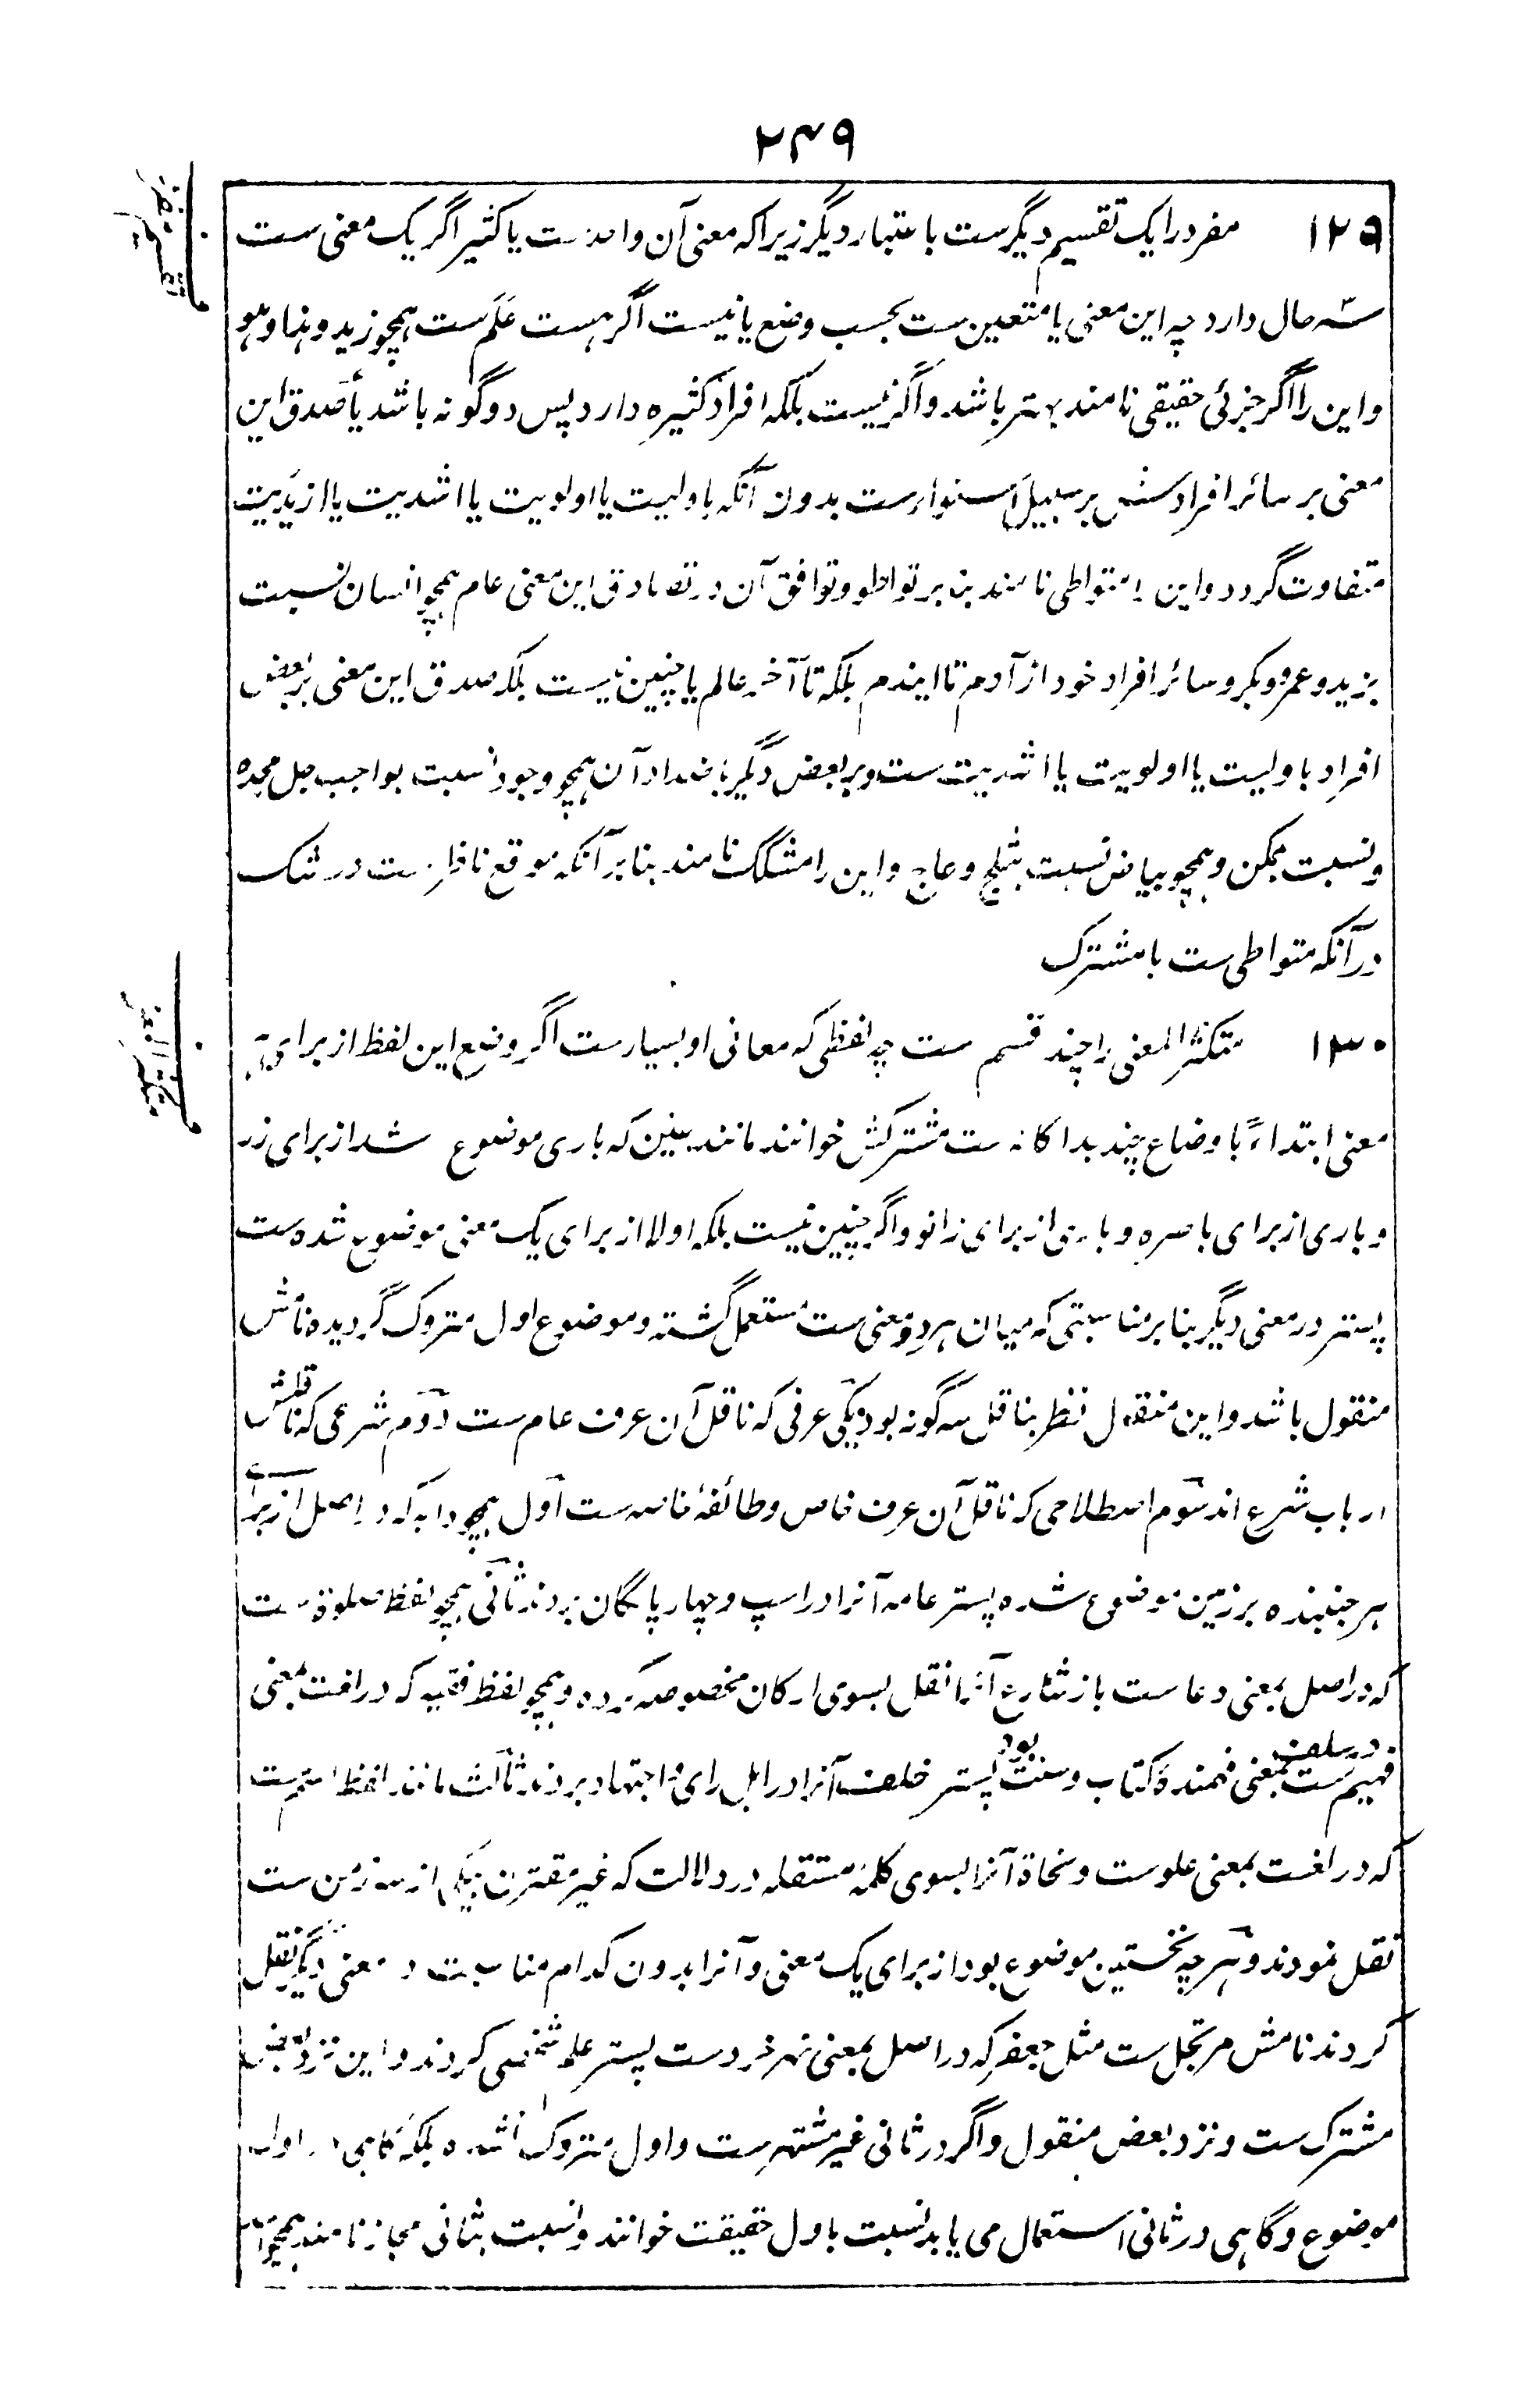 ۲۴۹
۱۲۹ مفرد را یک تقسیم دیگرست باعتبار دیگر زیرا که معنی آن واحدست یا کثیر اگر یک معنی ست
سه حال دارد چه این معنی یا متعین ست بحسب وضع یا نیست اگر هست علَم ست همچو زید و هذا و هو
و این را اگر جزئی حقیقی نامند بهتر باشد و اگر نیست بلکه افراد کثیره دارد پس دو گونه باشد یا صدق این
معنی بر سائر افرادش بر سبیل استواءست بدون آنکه باولیت یا اولویت یا اشدیت یا ازیدیت
متفاوت گردد و این را متواطی نامند بنا بر تواطو و توافق آن در تصادق این معنی عام همچو انسان نسبت
بزید و عمرو و بکر و سائر افراد خود از آدم تا ایندم بلکه تا آخر عالم یا چنین نیست بلکه صدق این معنی بر بعض
افراد باولیت یا اولویت یا اشدیت ست و بر بعض دیگر باضداد آن همچو وجود نسبت بواجب جل مجده
و نسبت بممکن و همچو بیاض نسبت بثلج و عاج و این را مشکک نامند بنا بر آنکه موقع ناظرست در شک
در آنکه متواطی ست یا مشترک
۱۳۰ متکثر المعنی را چند قسم ست چه لفظی که معانی او بسیارست اگر وضع این لفظ از برای هر
معنی ابتداءً باوضاع چند جداگانه ست مشترکش خوانند مانند عین که باری موضوع شد از برای زر
و باری از برای باصره و باری از برای زانو و اگر چنین نیست بلکه اولا از برای یک معنی موضوع شده ست
پستر در معنی دیگر بنا بر مناسبتی که میان هر دو معنی ست مستعمل گشته و موضوع اول متروک گردیده نامش
منقول باشد و این منقول نظر بناقل سه گونه بود یکی عرفی که ناقل آن عرف عام ست دوم شرعی که ناقلش
ارباب شرع اند سوم اصطلاحی که ناقل آن عرف خاص و طائفهٔ خاصه ست اول همچو دابه که در اصل از برای
هر جنبنده بر زمین موضوع شده پستر عامه آنرا در اسپ و چهار پایگان بردند ثانی همچو لفظ صلوة ست
که در اصل بمعنی دعا ست باز شارع آنرا نقل بسوی ارکان مخصوصه کرده و همچو لفظ فقیه که در لغت بمعنی
فهیم ست در سلف بمعنی فهمندهٔ کتاب و سنت بود پستر خلف آنرا در اهل رای و اجتهاد بردند ثالث مانند لفظ اسم ست
که در لغت بمعنی علوست و نحاة آنرا بسوی کلمهٔ مستقله در دلالت که غیر مقترن بیکی از سه زمن ست
نقل نمودند و هر چه نخستین موضوع بود از برای یک معنی و آنرا بدون کدام مناسبت در معنی دیگر نقل
کردند نامش مرتجل ست مثل جعفر که در اصل بمعنی نهر خردست پستر علم شخصی کردند و این نزد بعض
مشترک ست و نزد بعض منقول و اگر در ثانی غیر مشتهرست و اول متروک نشده بلکه گاهی در اول
موضوع و گاهی در ثانی استعمال می یابد نسبت باول حقیقت خوانند و نسبت بثانی مجاز نامند همچو